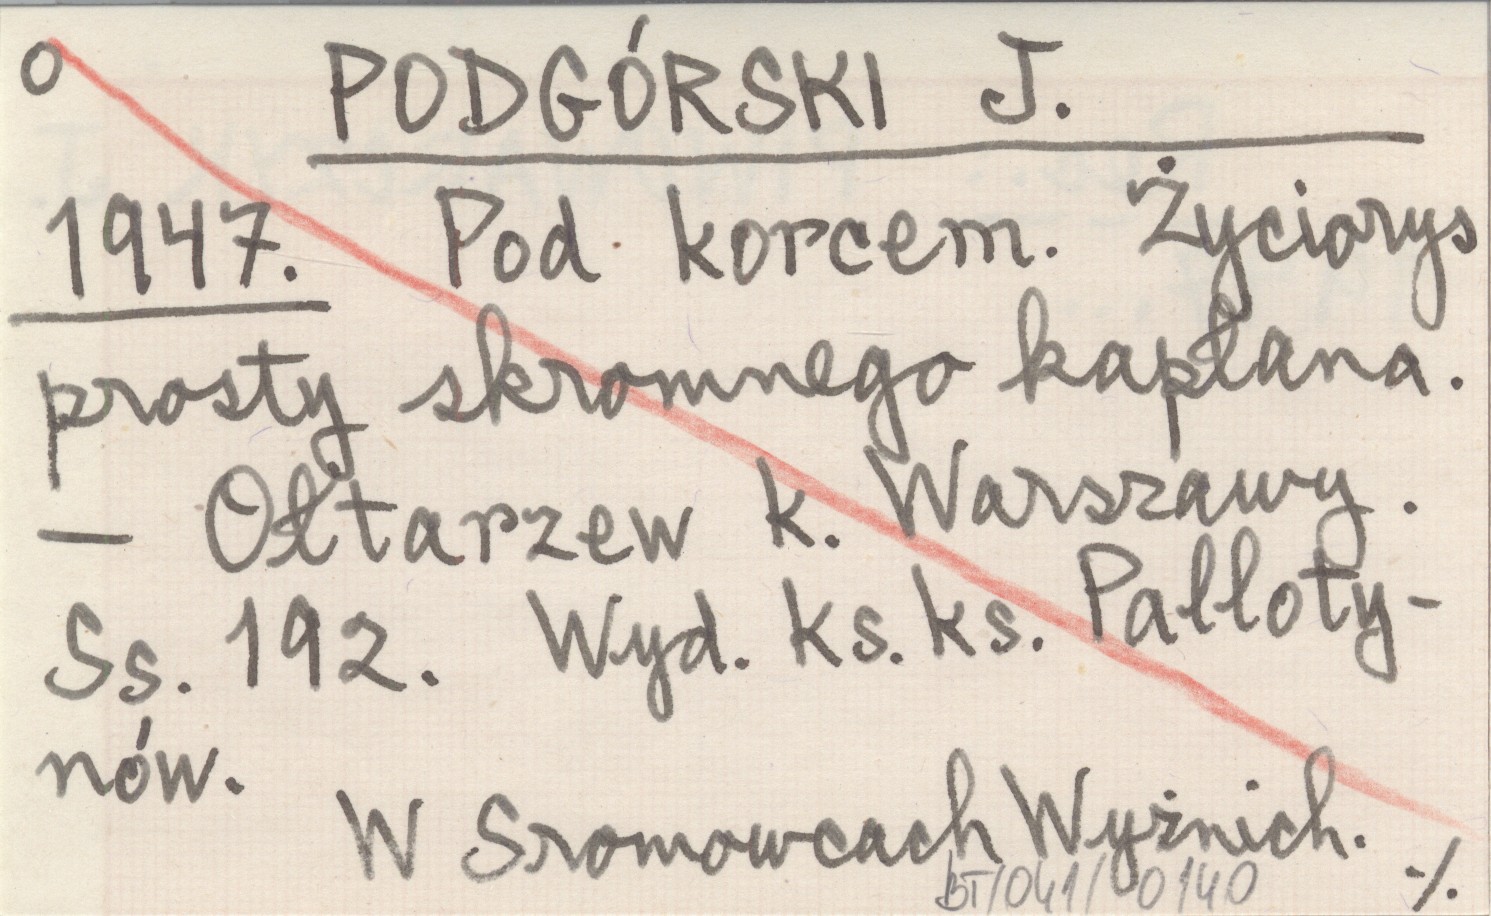 o PODGÓRSKI J.
1947. Pod korcem. Życiorys
prosty skromnego kapłana.
— Ołtarzew k. Warszawy.
Ss. 192. Wyd. ks. ks. Palloty-
nów.
W Sromowcach Wyżnich.
BT/041/00140 ./.